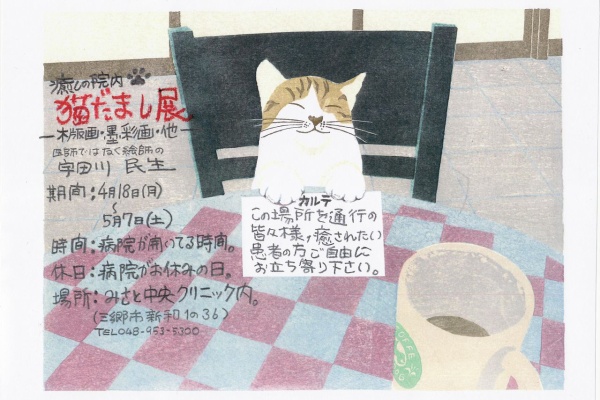 癒しの院内
猫だまし展
ー木版画・墨彩画・他ー
医師ではなく絵師の
宇田川 民生
期間:4月18日(月)
〜
5月7日(土)
時間:病院が開いてる時間。
休日:病院がお休みの日。
場所:みさと中央クリニック内。
(三郷市新和1の36)
TEL048-953-5300
カルテ
この場所を通行の
皆々様,癒されたい
患者の方ご自由に
お立ち寄り下さい。